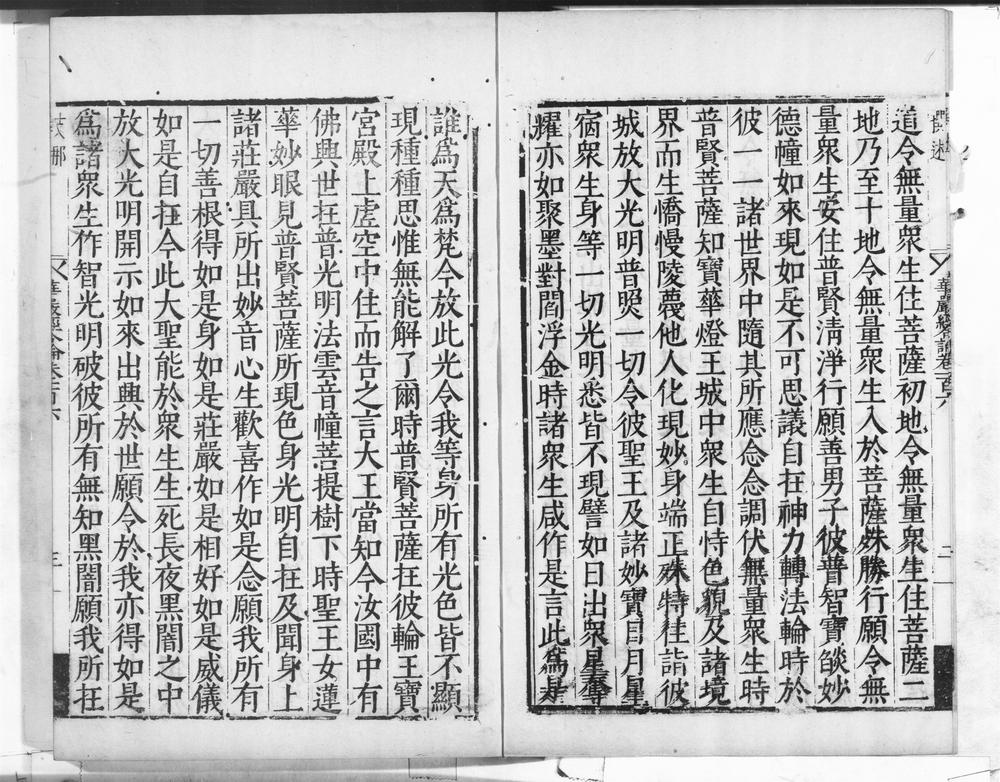 道令無量衆生住菩薩初地令無量衆生住菩薩二
地乃至十地令無量衆生入於菩薩殊勝行願令無
量衆生安住普賢清淨行願善男子彼普智寶燄妙
德幢如來現如是不可思議自在神力轉法輪時於
彼一一諸世界中隨其所應念念調伏無量衆生時
普賢菩薩知寶華燈王城中衆生自恃色貌及諸境
界而生憍慢陵蔑他人化現妙身端正殊特往詣彼
城放大光明普照一切令彼聖王及諸妙寶日月星
宿衆生身等一切光明悉皆不現譬如日出衆星奪
耀亦如聚墨對閻浮金時諸衆生咸作是言此爲是
二
誰爲天爲梵今放此光令我等身所有光色皆不顯
現種種思惟無能解了爾時普賢菩薩在彼輪王寶
宮殿上虛空中住而告之言大王當知今汝國中有
佛興世在普光明法雲音幢菩提樹下時聖王女蓮
華妙眼見普賢菩薩所現色身光明自在及聞身上
諸莊嚴具所出妙音心生歡喜作如是念願我所有
一切善根得如是身如是莊嚴如是相好如是威儀
如是自在今此大聖能於衆生生死長夜黑闇之中
放大光明開示如來出興於世願令於我亦得如是
爲諸衆生作智光明破彼所有無知黑闇願我所在
華嚴經合論卷一百六
三